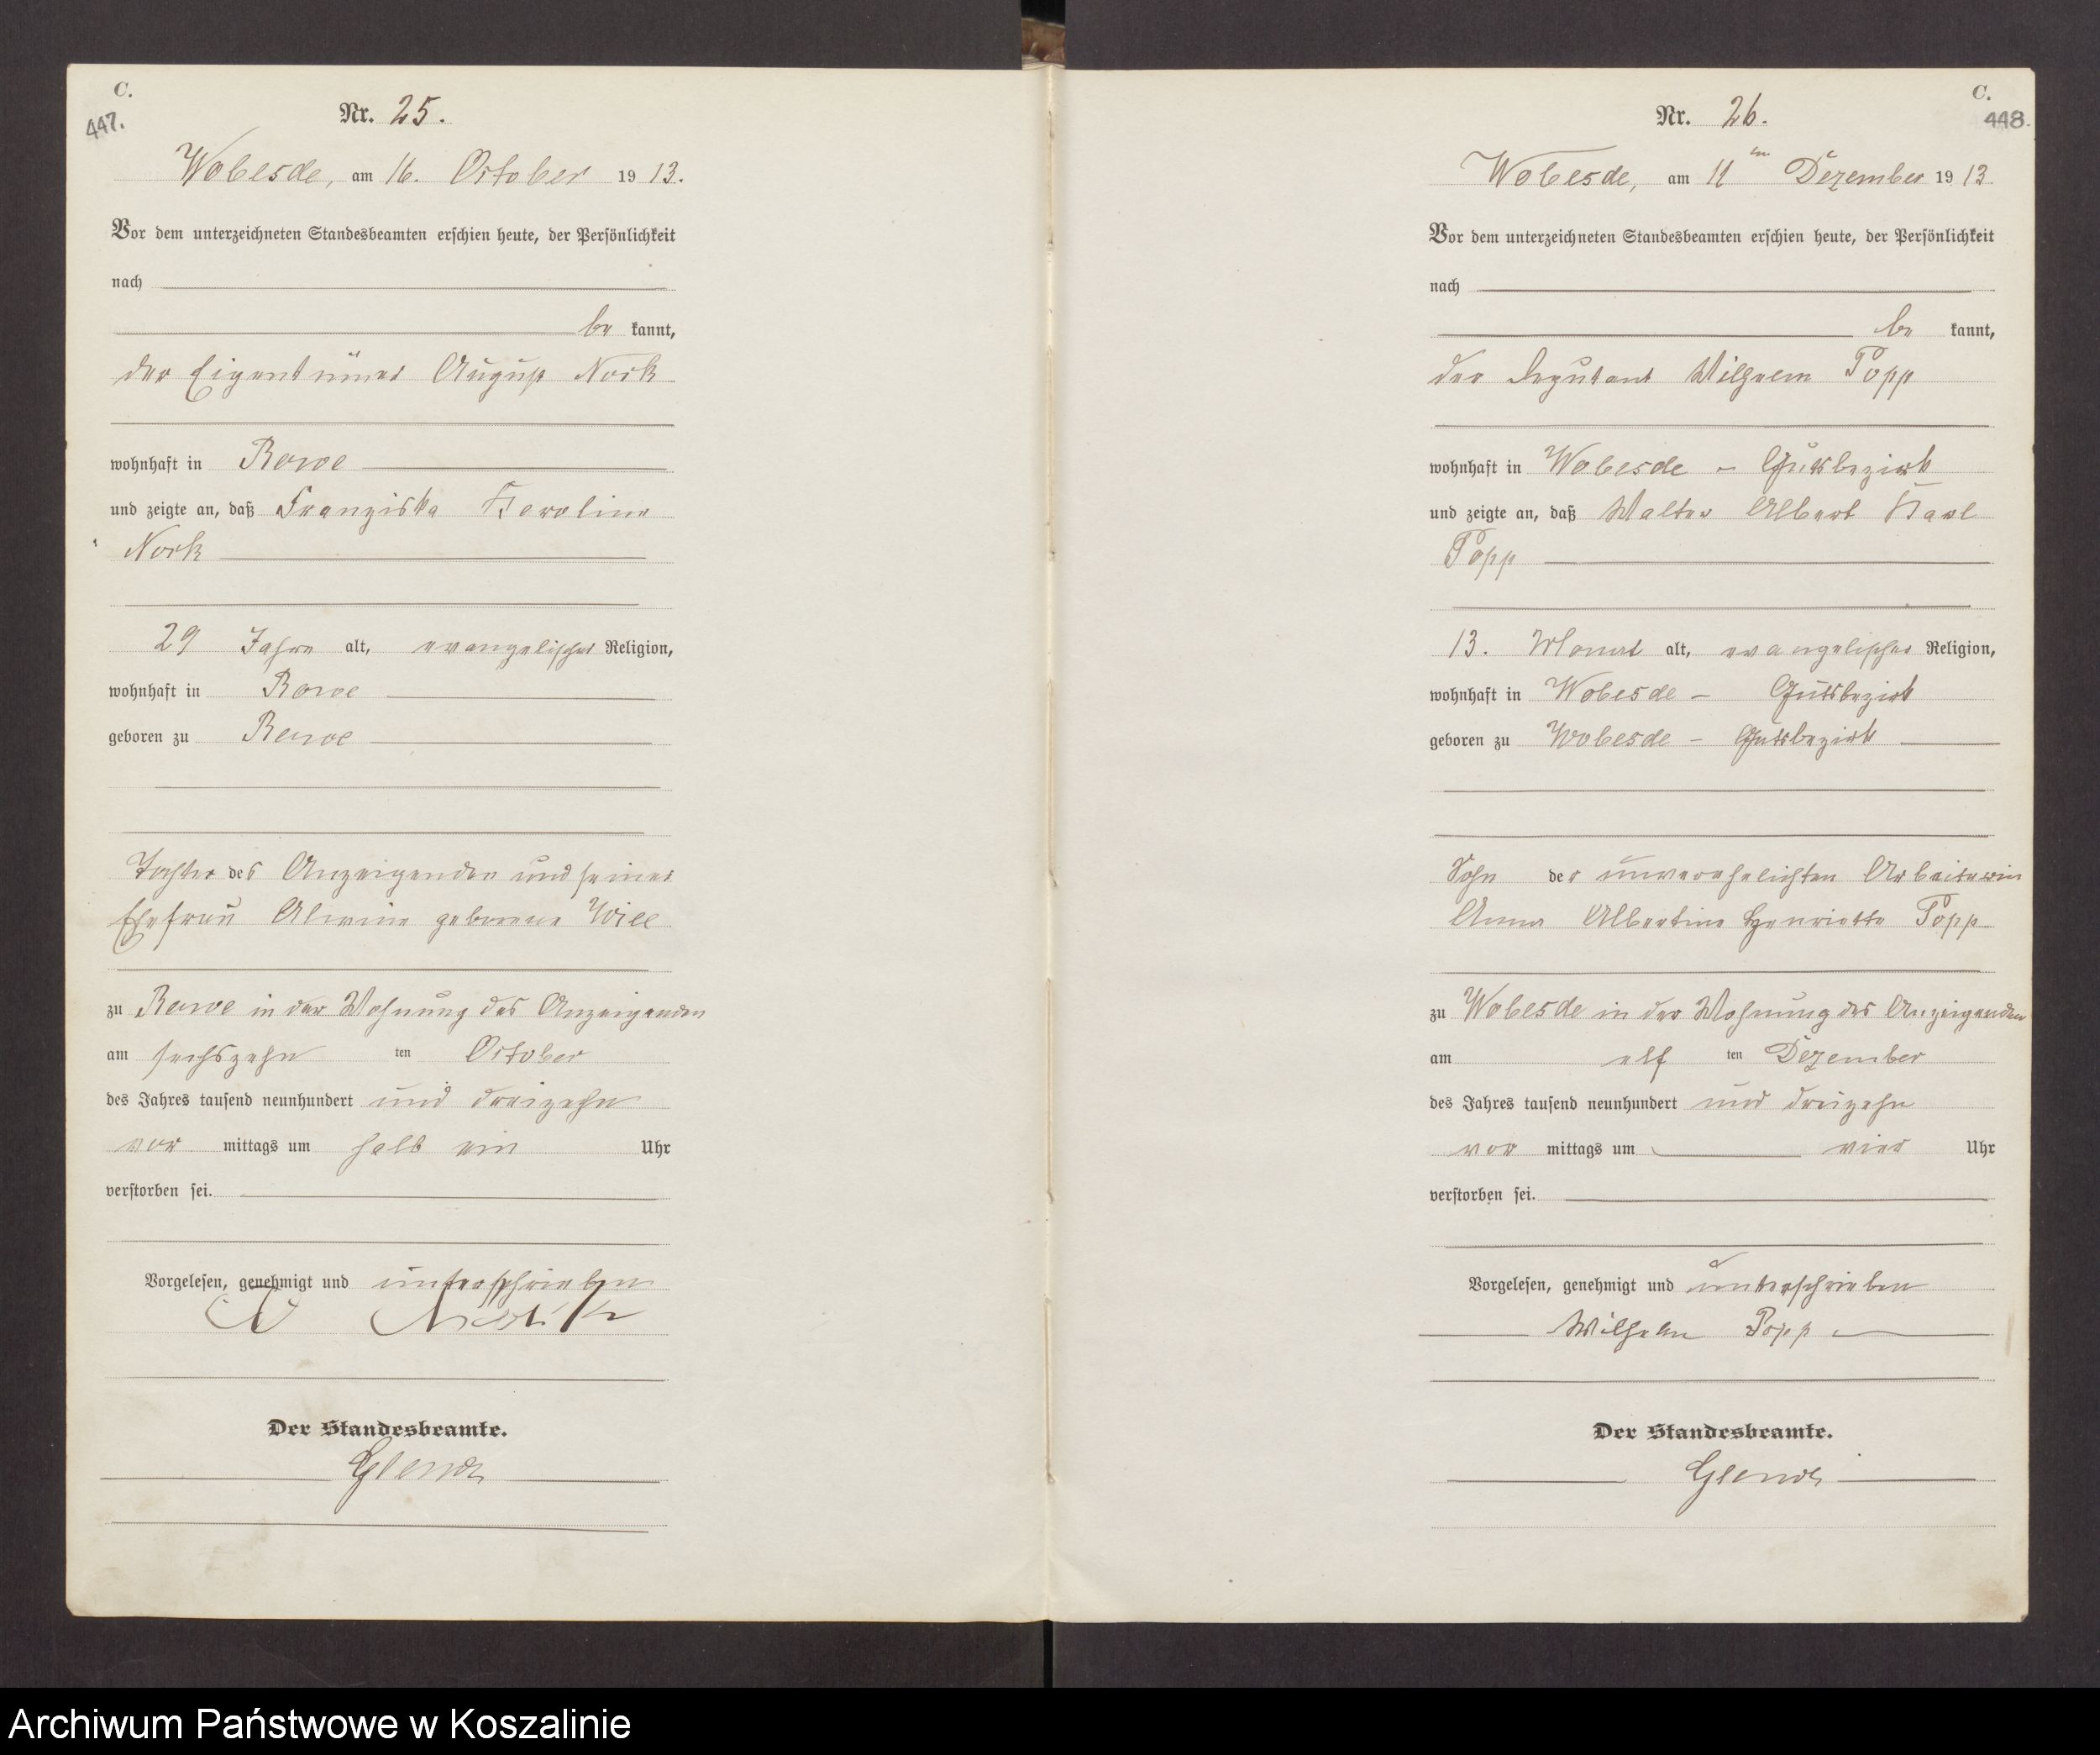 C.
447.
Nr. 25.
Wobesde, am 16. October 1913.
Vor dem unterzeichneten Standesbeamten erschien heute, der Persönlichkeit
nach
be kannt,
der Eigentümer August Nork
wohnhaft in Rowe
und zeigte an, daß Franziska Karoline
Nork
29 Jahre alt, evangelischer Religion,
wohnhaft in Rowe
geboren zu Rowe
Tochter des Anzeigenden und seiner
Ehefrau Alwine geborene Will
zu Rowe in der Wohnung des Anzeigenden
am sechszehn ten October
des Jahres tausend neunhundert und dreizehn
vor mittags um halb ein Uhr
verstorben sei.
Vorgelesen, genehmigt und unterschrieben
A Nork
Der Standesbeamte.
C.
448.
Nr. 26.
Wobesde, am 11ten Dezember 1913
Vor dem unterzeichneten Standesbeamten erschien heute, der Persönlichkeit
nach
be kannt,
der Deputant Wilhelm Popp
wohnhaft in Wobesde - Gutsbezirk
und zeigte an, daß Walter Albert Karl
Popp
13. Monat alt, evangelischer Religion,
wohnhaft in Wobesde - Gutsbezirk
geboren zu Wobesde - Gutsbezirk
Sohn der unverehelichten Arbeiterin
Anna Albertine Henriette Popp
zu Wobesde in der Wohnung des Anzeigenden
am elf ten Dezember
des Jahres tausend neunhundert und dreizehn
vor mittags um vier Uhr
verstorben sei.
Vorgelesen, genehmigt und unterschrieben
Wilhelm Popp
Der Standesbeamte.
Archiwum Państwowe w Koszalinie